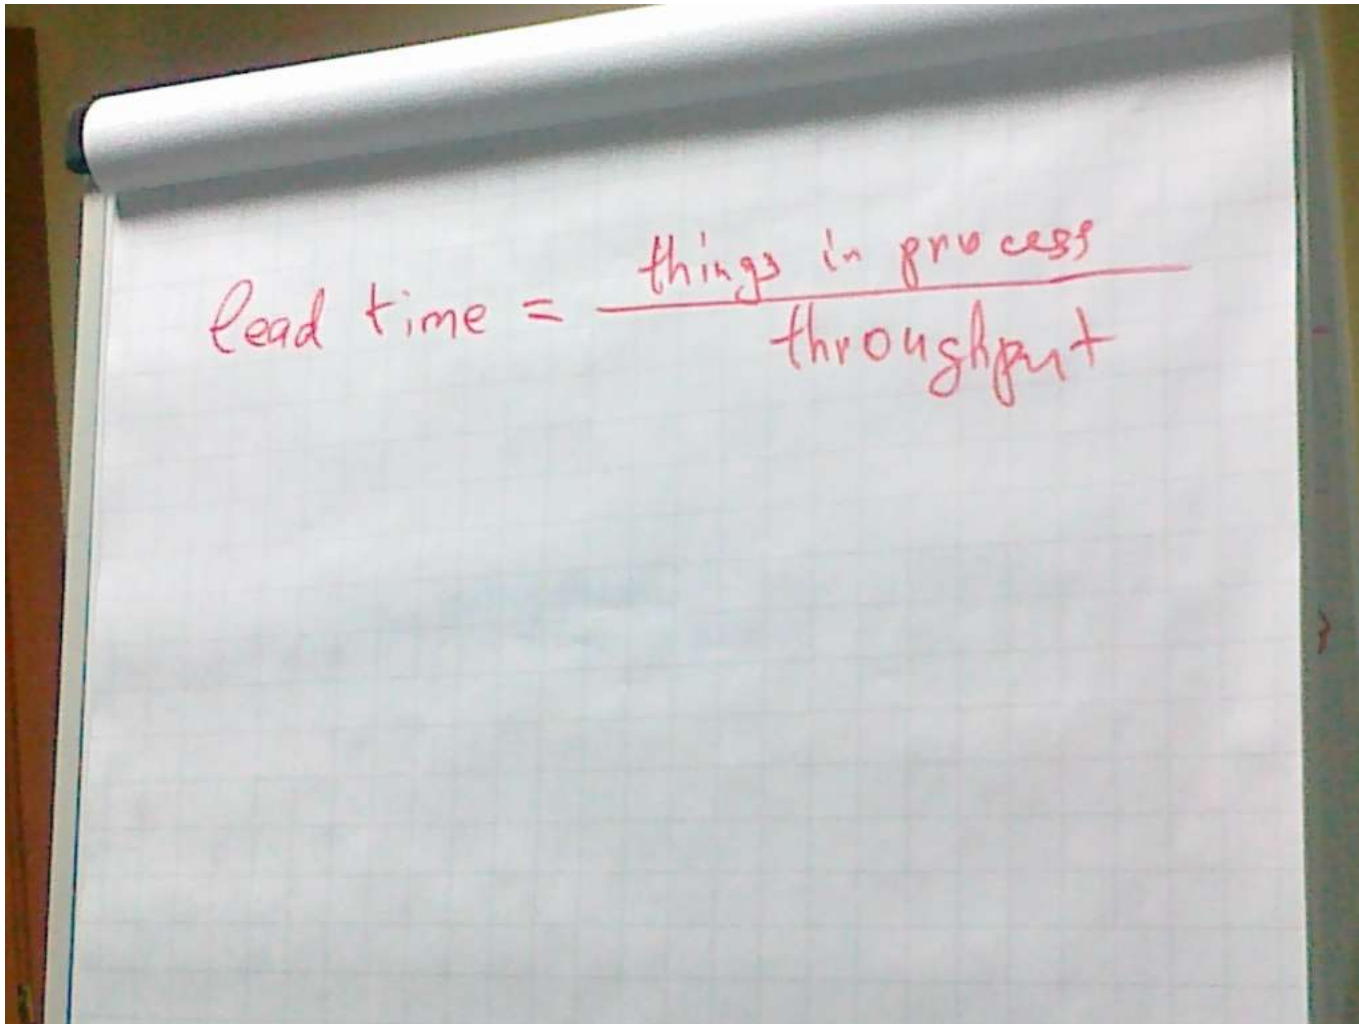 lead time = things in process
throughput